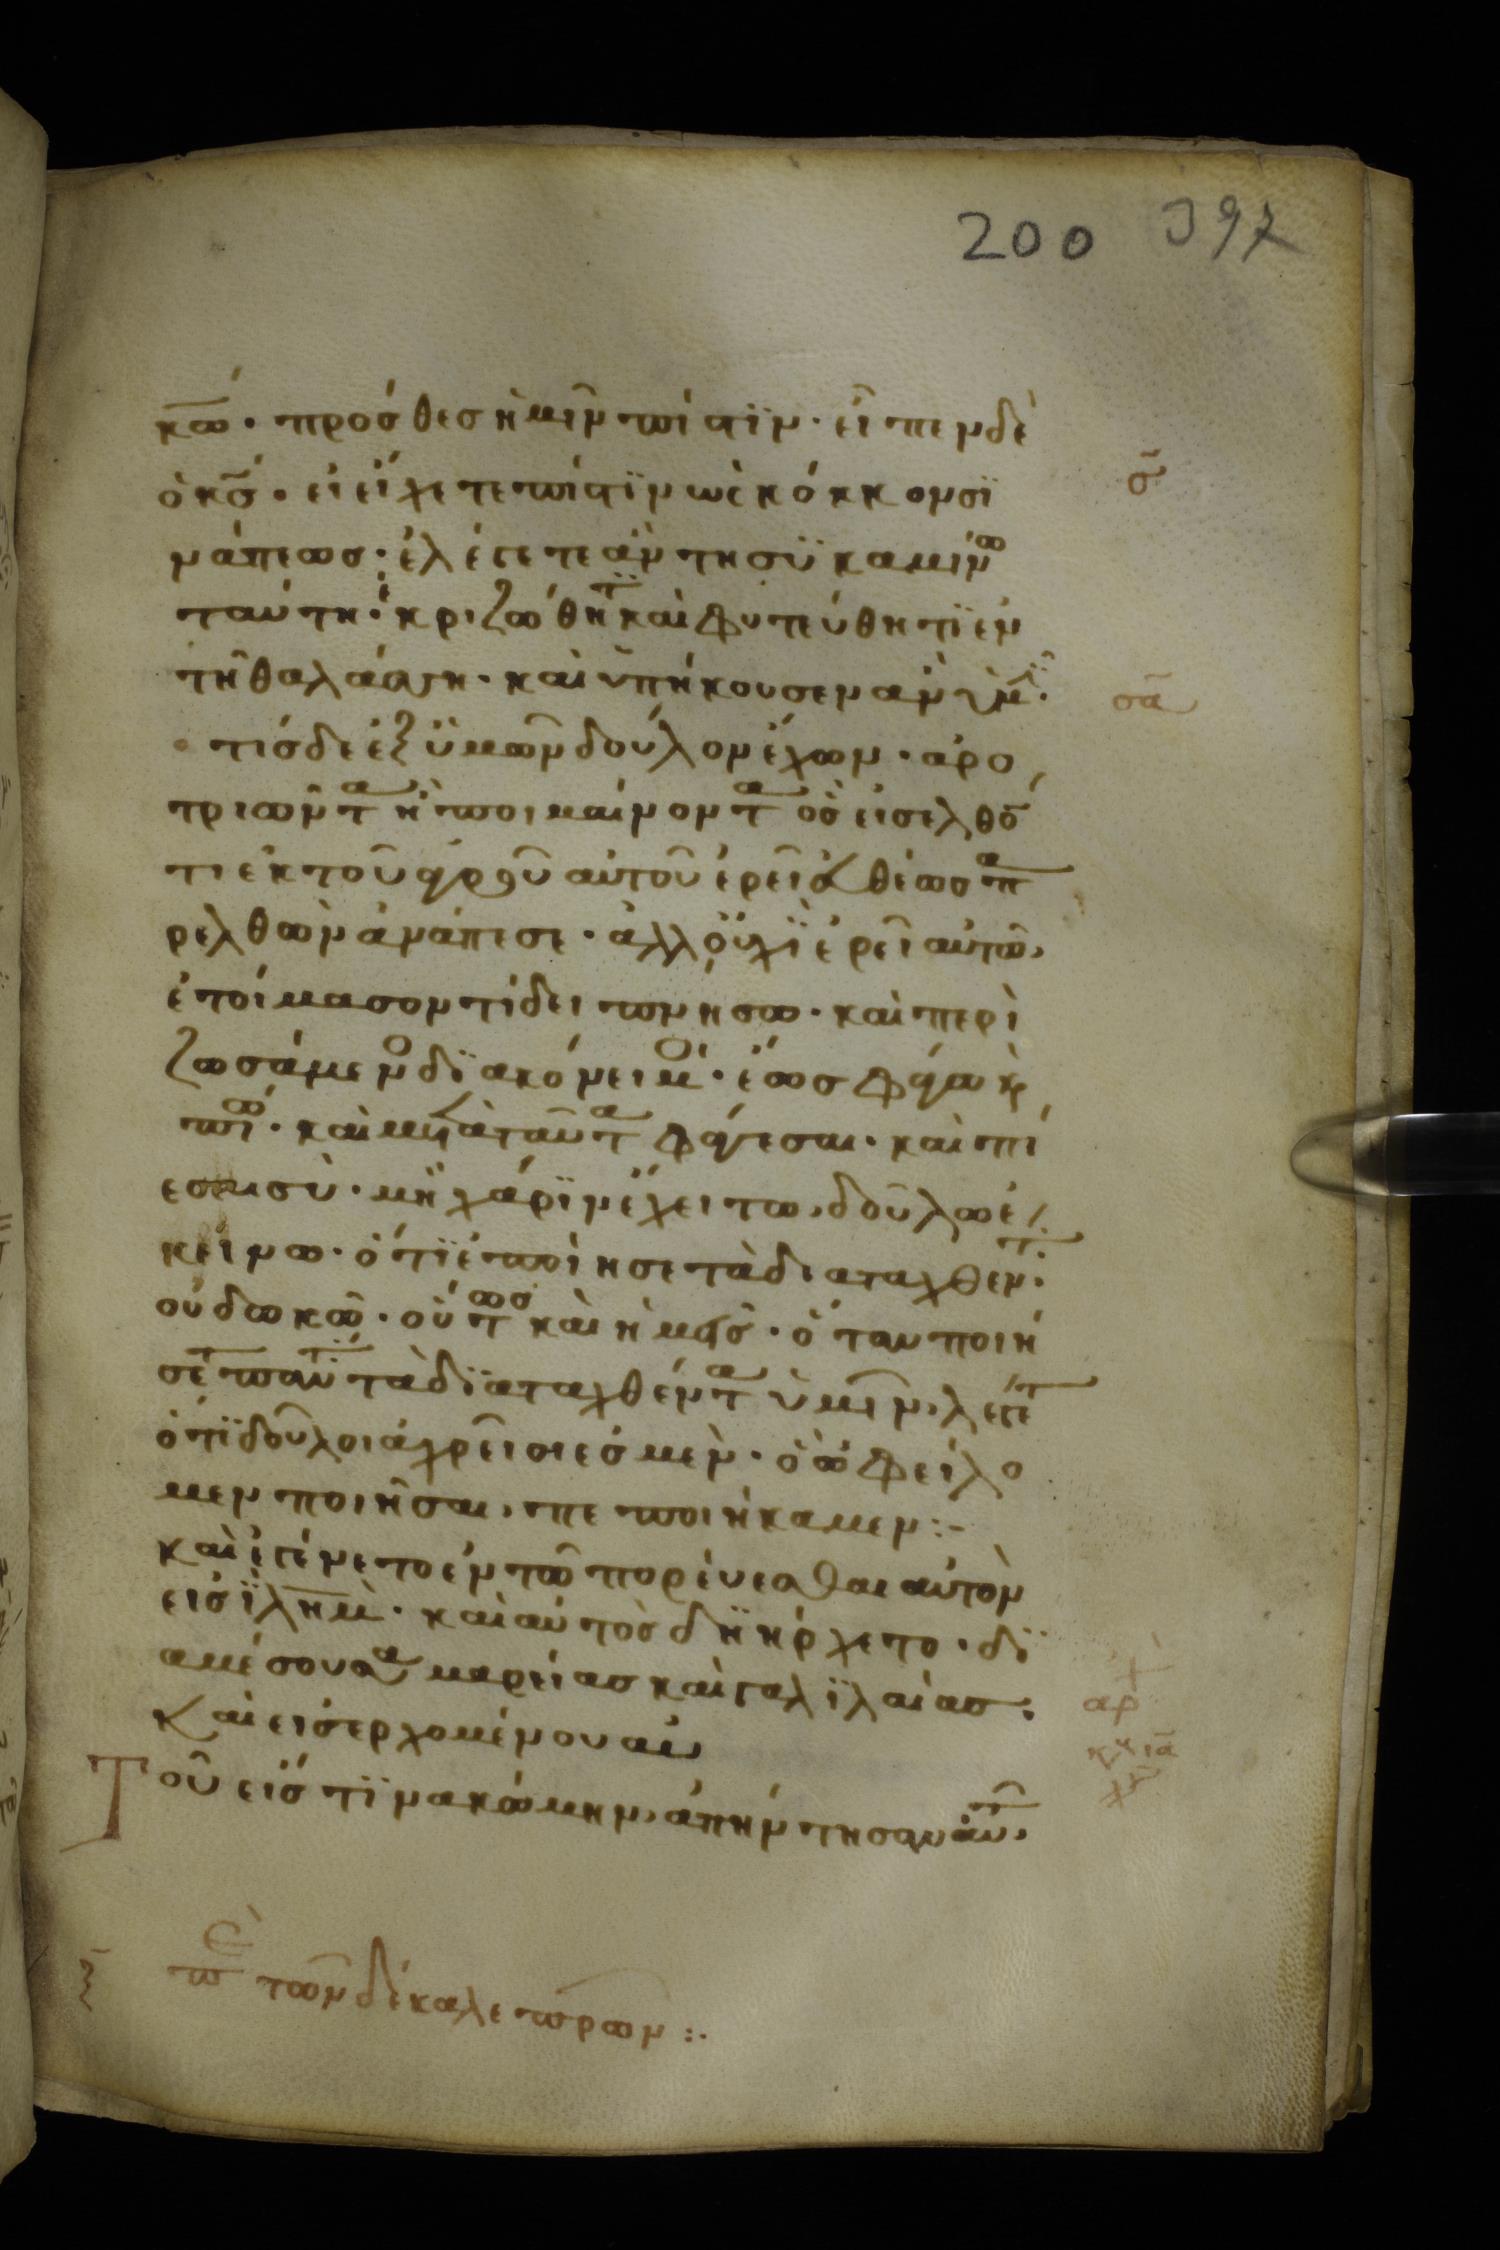 200 397
κῶ· πρόσθεσ ἡμῖν πίστϊν· εἶπεν δὲ
ὁ κς̄· εἰ εἴχετε πίστϊν ὡς κόκκον σϊ
νάπεωσ· ἐλέγετε ἂν τη συϊκαμίνω
ταύτη· ἐκριζώθητϊ καὶ φυτεύθητϊ ἐν
τῆ θαλάσση· καὶ ὑπήκουσεν ἂν ὑμῖ·
τίσ δε ἐξ ὑμῶν δοῦλον ἔχων· ἀρο
τριῶντα ἢ ποιμαίνοντα ὃσ εἰσελθό
τι ἐκ τοῦ ἀγροῦ αὐτοῦ ἐρεῖ εὐθέωσ πα
ρελθὼν ἀνάπεσε· ἀλλ οὐχῒ ἐρεῖ αὐτῶ,
ἑτοίμασον τί δειπνησω· καὶ περὶ
ζωσάμενο δϊακόνει μοί· ἕωσ φάγω κ
πίω· καὶ μετὰ ταῦτα φάγεσαι· καὶ πί
εσαι σὺ· μὴ χάρϊν ἔχει τω, δούλω ἐ
κείνω· ὅτϊ ἐποίησε τὰ διαταχθεντ·
οὐ δωκῶ· οὕτωσ καὶ ἡμεῖσ· ὅταν ποιή
σετ παντ τὰ δϊαταχθέντα ὑμῖν, λέγετ
ὅτϊ δοῦλοι ἀχρεῖοι εσμὲν· ὃ ὠφείλο
μεν ποιῆσαι, πεποιήκαμεν :-
καὶ ἐγένετο ἐν τῶ πορεύεσθαι αὐτὸν
εἰσ ϊλημ̄· καὶ αὐτὸσ δϊήρχετο· δϊ
α μέσου σαμαρείασ καὶ γαλϊλαίασ·
Καὶ εισερχομένου αυ
Τοῦ εἴσ τϊνα κώμην, ἀπήντησαν αὐτ,
σ̄
σᾱ
αρ
ξ πε τῶν δέκα λεπρῶν :·